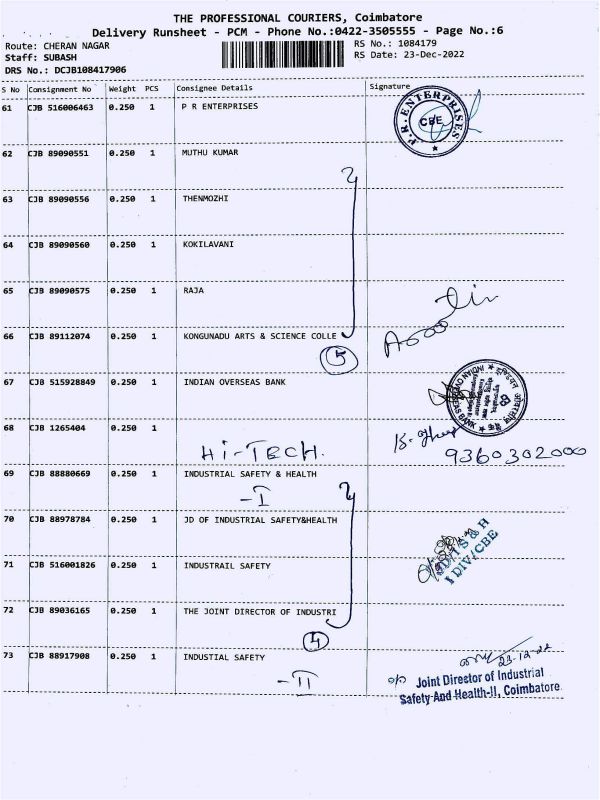 THE PROFESSIONAL COURIERS, Coimbatore
Delivery Runsheet - PCM - Phone No.:0422-3505555 - Page No.:6
Route: CHERAN NAGAR
RS No.: 1084179
Staff: SUBASH
RS Date: 23-Dec-2022
DRS No.: DCJB108417906
S No Consignment No Weight PCS Consignee Details Signature
61 CJB 516006463 0.250 1 P R ENTERPRISES
P.R. ENTERPRISES CBE
62 CJB 89090551 0.250 1 MUTHU KUMAR
63 CJB 89090556 0.250 1 THENMOZHI
64 CJB 89090560 0.250 1 KOKILAVANI
65 CJB 89090575 0.250 1 RAJA
66 CJB 89112074 0.250 1 KONGUNADU ARTS & SCIENCE COLLE
5
67 CJB 515928849 0.250 1 INDIAN OVERSEAS BANK
INDIAN OVERSEAS BANK
68 CJB 1265404 0.250 1
Hi-TECH.
9360302000
69 CJB 88880669 0.250 1 INDUSTRIAL SAFETY & HEALTH
-I
70 CJB 88978784 0.250 1 JD OF INDUSTRIAL SAFETY&HEALTH
JD/IS & H
I DIV/CBE
71 CJB 516001826 0.250 1 INDUSTRAIL SAFETY
72 CJB 89036165 0.250 1 THE JOINT DIRECTOR OF INDUSTRI
4
73 CJB 88917908 0.250 1 INDUSTIAL SAFETY
23.12.22
-II
o/o Joint Director of Industrial
Safety And Health-II, Coimbatore.